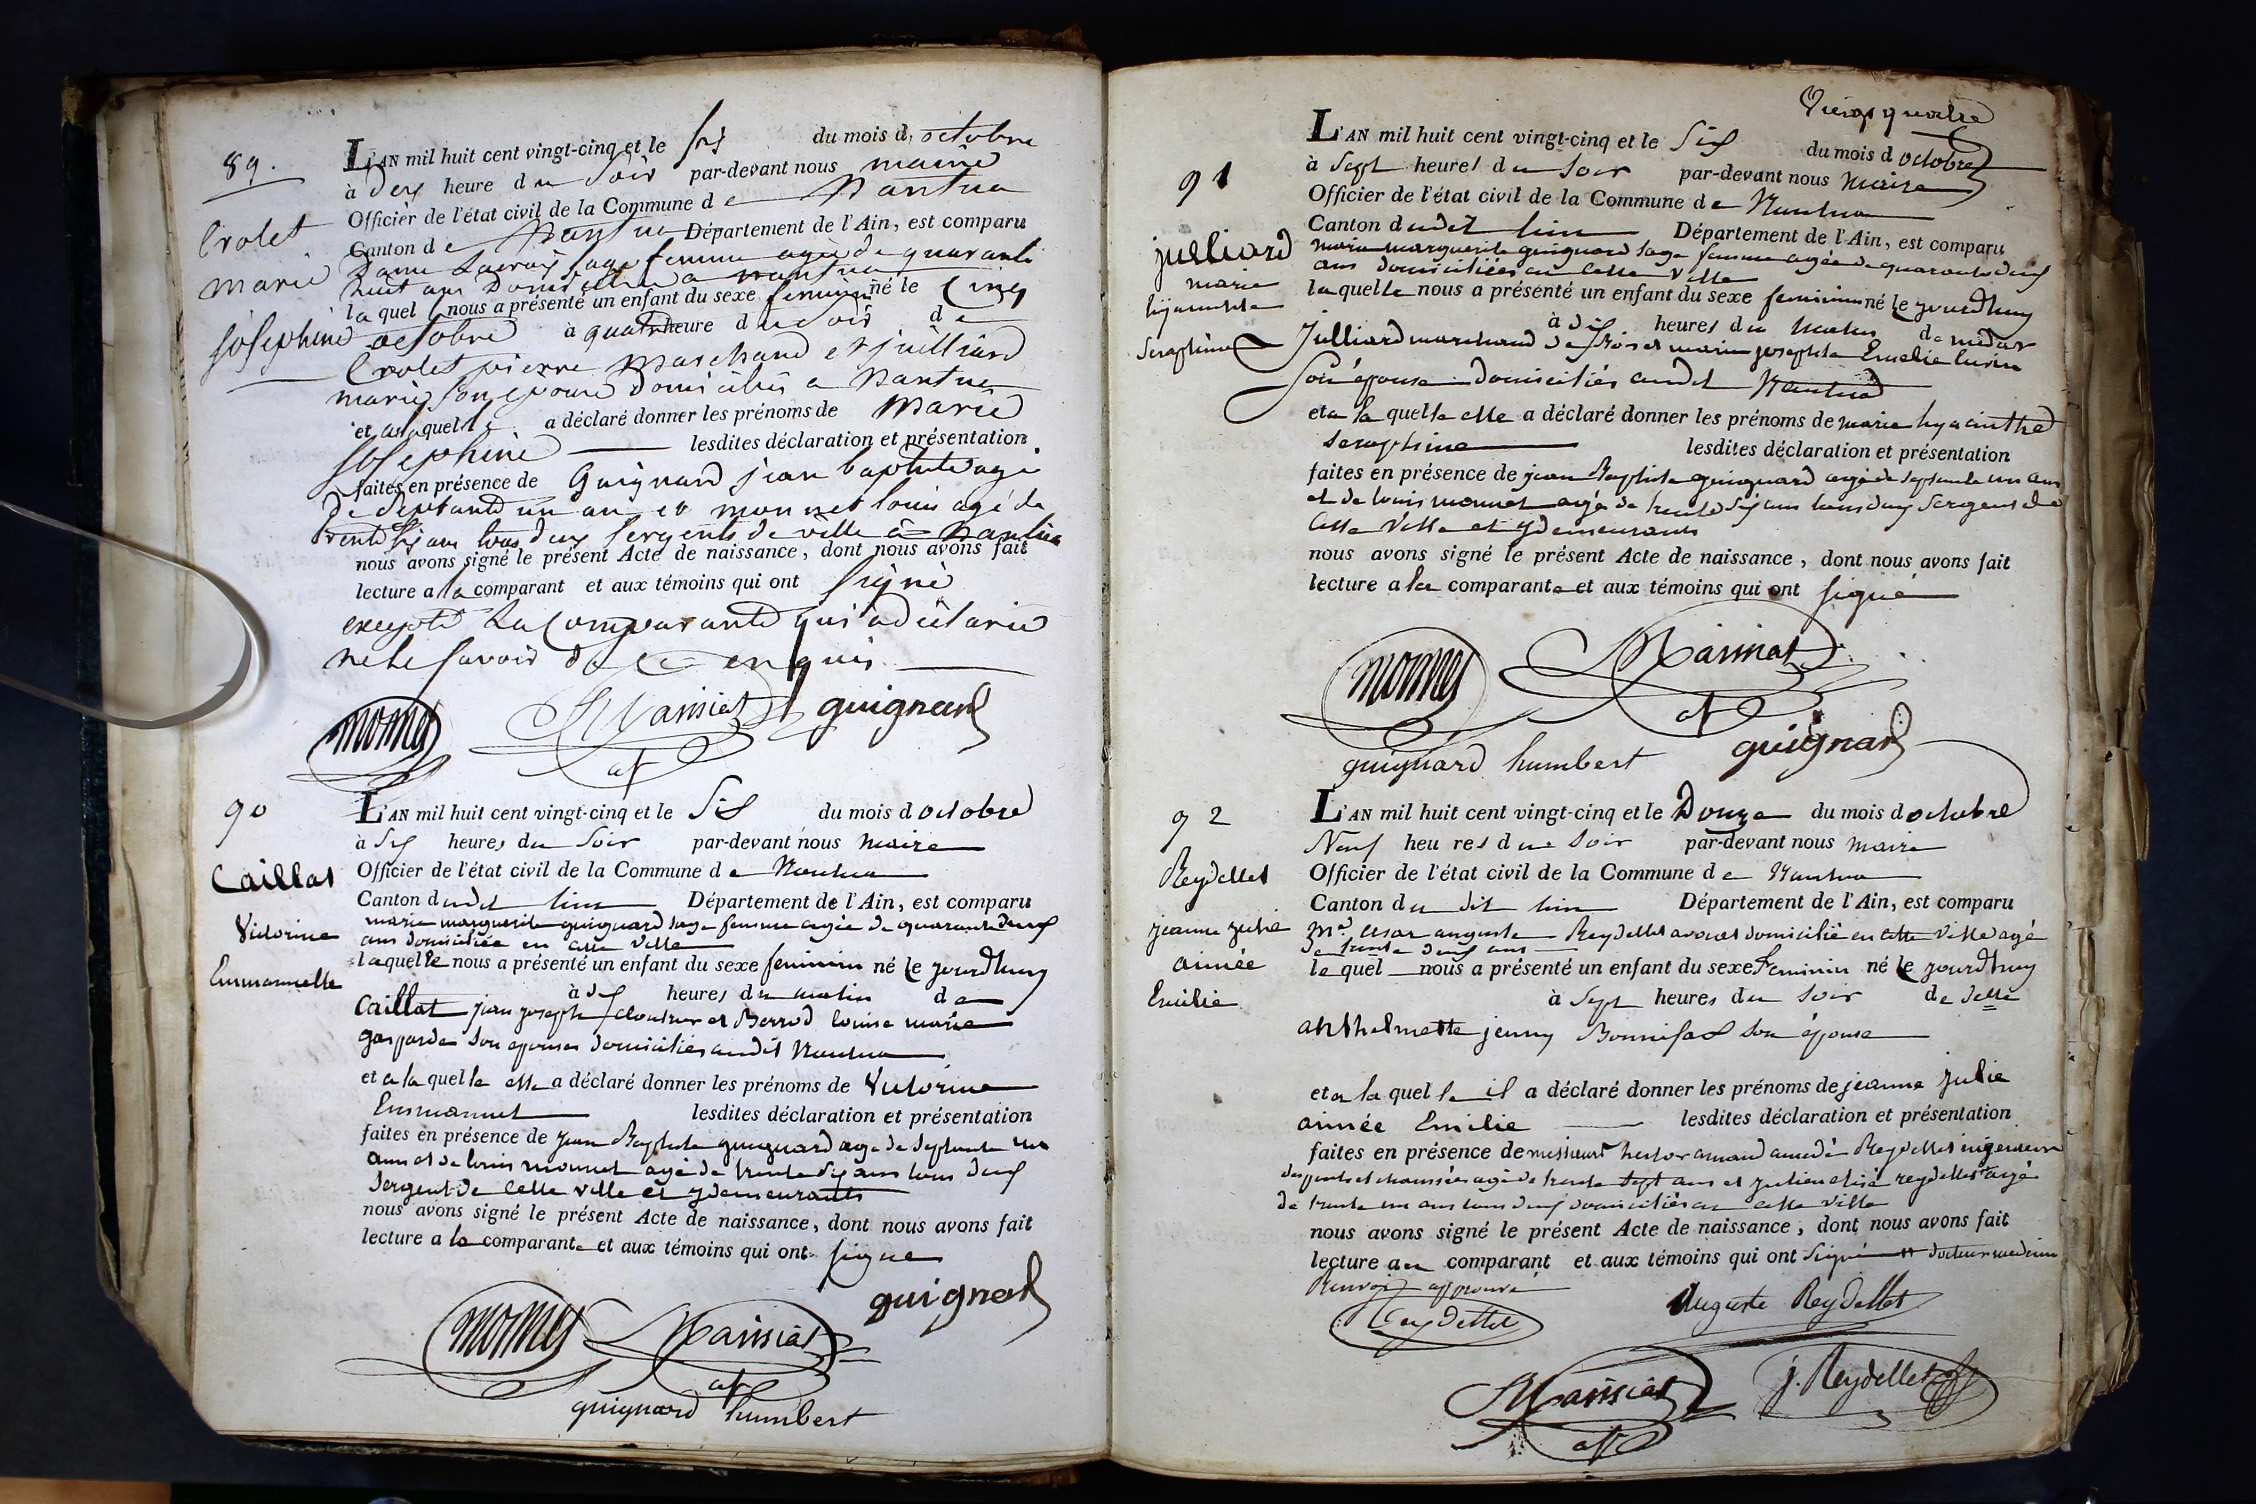 89.
Crolet
marie
josephine
L'AN mil huit cent vingt-cinq et le six du mois d'octobre
à dix heure du soir par-devant nous maire
Officier de l'état civil de la Commune de Nantua
Canton de Nantua Département de l'Ain, est comparu
Dame Lacroix sage femme agée de quarante
huit ans Domiciliée a nantua
laquelle nous a présenté un enfant du sexe feminin né le Cinq
octobre à quatre heure du soir de
Crolet pierre marchand et juilliard
marie son epouse domiciliés a Nantua
et a laquelle a déclaré donner les prénoms de Marie
Josephine lesdites déclaration et présentation
faites en présence de Guignard jean baptiste agé
De Septante un an et monnet louis agé de
trente six ans tous deux sergents de ville à Nantua
nous avons signé le présent Acte de naissance, dont nous avons fait
lecture a la comparant et aux témoins qui ont signé
excepté La Comparante qui a déclaré
ne le savoir de ce enquis
monnet Maissiat guignard
90
Caillat
Victorine
Emmannuelle
L'AN mil huit cent vingt-cinq et le Six du mois d octobre
à Six heures du soir par-devant nous maire
Officier de l'état civil de la Commune de Nantua
Canton dudit lieu Département de l'Ain, est comparu
marie marguerite guignard sage femme agée de quarante deux
ans domiciliée en cette ville
laquelle nous a présenté un enfant du sexe feminin né le jourdhuy
à dix heures du matin de
Caillat jean joseph cloutier et Berrod louise marie
gasparde son epouse domiciliés audit Nantua
et a la quelle elle a déclaré donner les prénoms de Victorine
Emmannuel lesdites déclaration et présentation
faites en présence de jean Baptiste guignard age de septante un
ans et de louis monnet agé de trente six ans tous deux
Sergent de cette ville et y demeurants
nous avons signé le présent Acte de naissance, dont nous avons fait
lecture a la comparante et aux témoins qui ont signé
guignard
monnet Maissiat
guignard humbert
Vingt quatre
91
julliard
marie
hyacinthe
Seraphine
L'AN mil huit cent vingt-cinq et le Six du mois d octobre
à Sept heures du soir par-devant nous maire
Officier de l'état civil de la Commune de Nantua
Canton dudit lieu Département de l'Ain, est comparu
marie marguerite guignard sage femme agée de quarante deux
ans domiciliées en cette ville
laquelle nous a présenté un enfant du sexe feminin né le jourdhuy
à dix heures du matin de médar
Julliard marchand de bois et marie josephte Emelie
son épouse domiciliés audit Nantua
et a la quelle elle a déclaré donner les prénoms de marie hyacinthe
Seraphine lesdites déclaration et présentation
faites en présence de jean Baptiste guignard agé de septante un ans
et de louis monnet agé de trente six ans tous deux sergent de
cette ville et y demeurants
nous avons signé le présent Acte de naissance, dont nous avons fait
lecture a la comparante et aux témoins qui ont signé
monnet Maissiat
guignard humbert guignard
92
Reydellet
jeanne julie
aimée
Emilie
L'AN mil huit cent vingt-cinq et le Douze du mois d octobre
Neuf heures du soir par-devant nous maire
Officier de l'état civil de la Commune de Nantua
Canton du dit lieu Département de l'Ain, est comparu
Me Cesar auguste Reydellet avocat domicilié en cette ville agé
de trente deux ans
lequel nous a présenté un enfant du sexe feminin né le jourdhuy
à sept heures du soir de delle
anthelmette jenny Bonnifas son épouse
et a la quelle il a déclaré donner les prénoms de jeanne julie
aimée Emilie lesdites déclaration et présentation
faites en présence de messieurs hector amand amedé Reydellet ingenieur
des ponts et chaussées agé de trente sept ans et julien elisé reydellet agé
de trente un ans tous deux domiciliés en cette ville
nous avons signé le présent Acte de naissance, dont nous avons fait
lecture au comparant et aux témoins qui ont signé docteur medecin
Renvoi approuvé
Reydellet Auguste Reydellet
Maissiat j. Reydellet